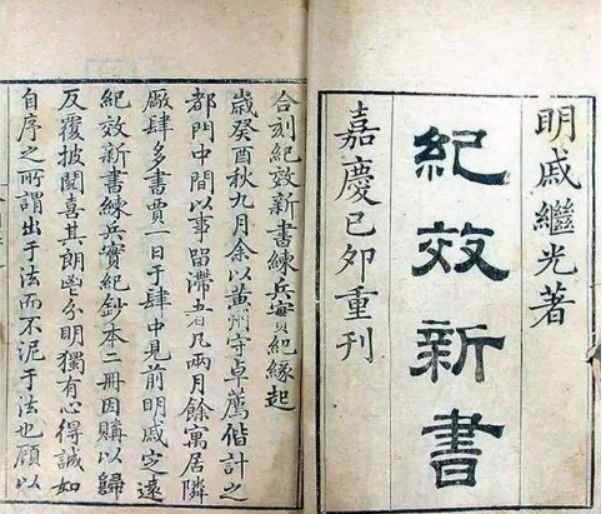 明戚繼光著
紀效新書
嘉慶己卯重刊
合刻紀效新書練兵實紀緣起
歲癸酉秋九月余以黃州守卓薦偕計之
都門中間以事留滯者凡兩月餘寓居隣
廠肆多書賈一日于肆中見前明戚定遠
紀效新書練兵實紀鈔本二冊因購以歸
反覆披閱喜其朗鬯分明獨有心得誠如
自序之所謂出于法而不泥于法也顧以